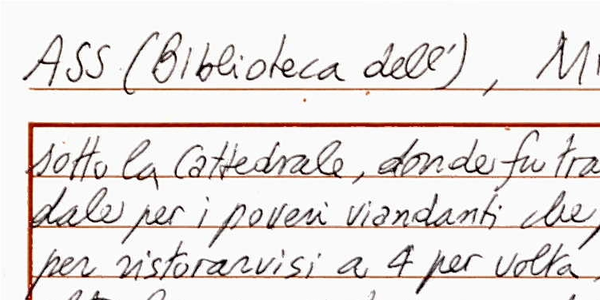 ASS (Biblioteca dell'),
sotto la Cattedrale, donde fu tra
dale per i poveri viandanti che
per ristorarvisi a 4 per volta